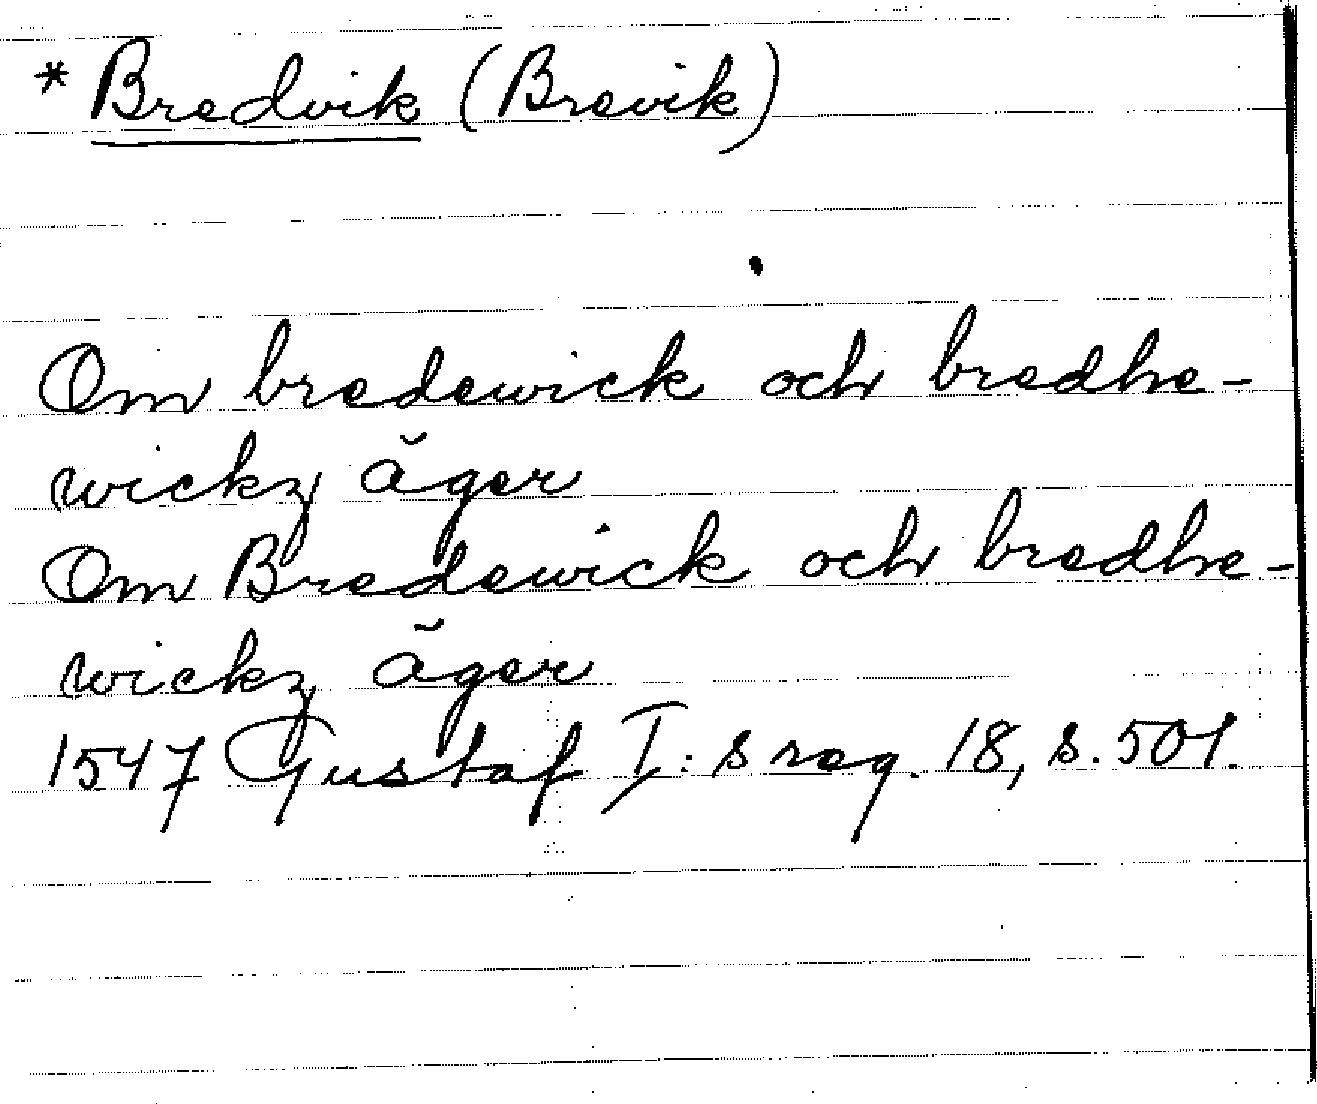 * Bredvik (Brevik)
Om bredewick och bredhe-
wickz äger
Om Bredewick och bredhe-
wickz äger
1547 Gustaf I:s reg. 18, s. 501.